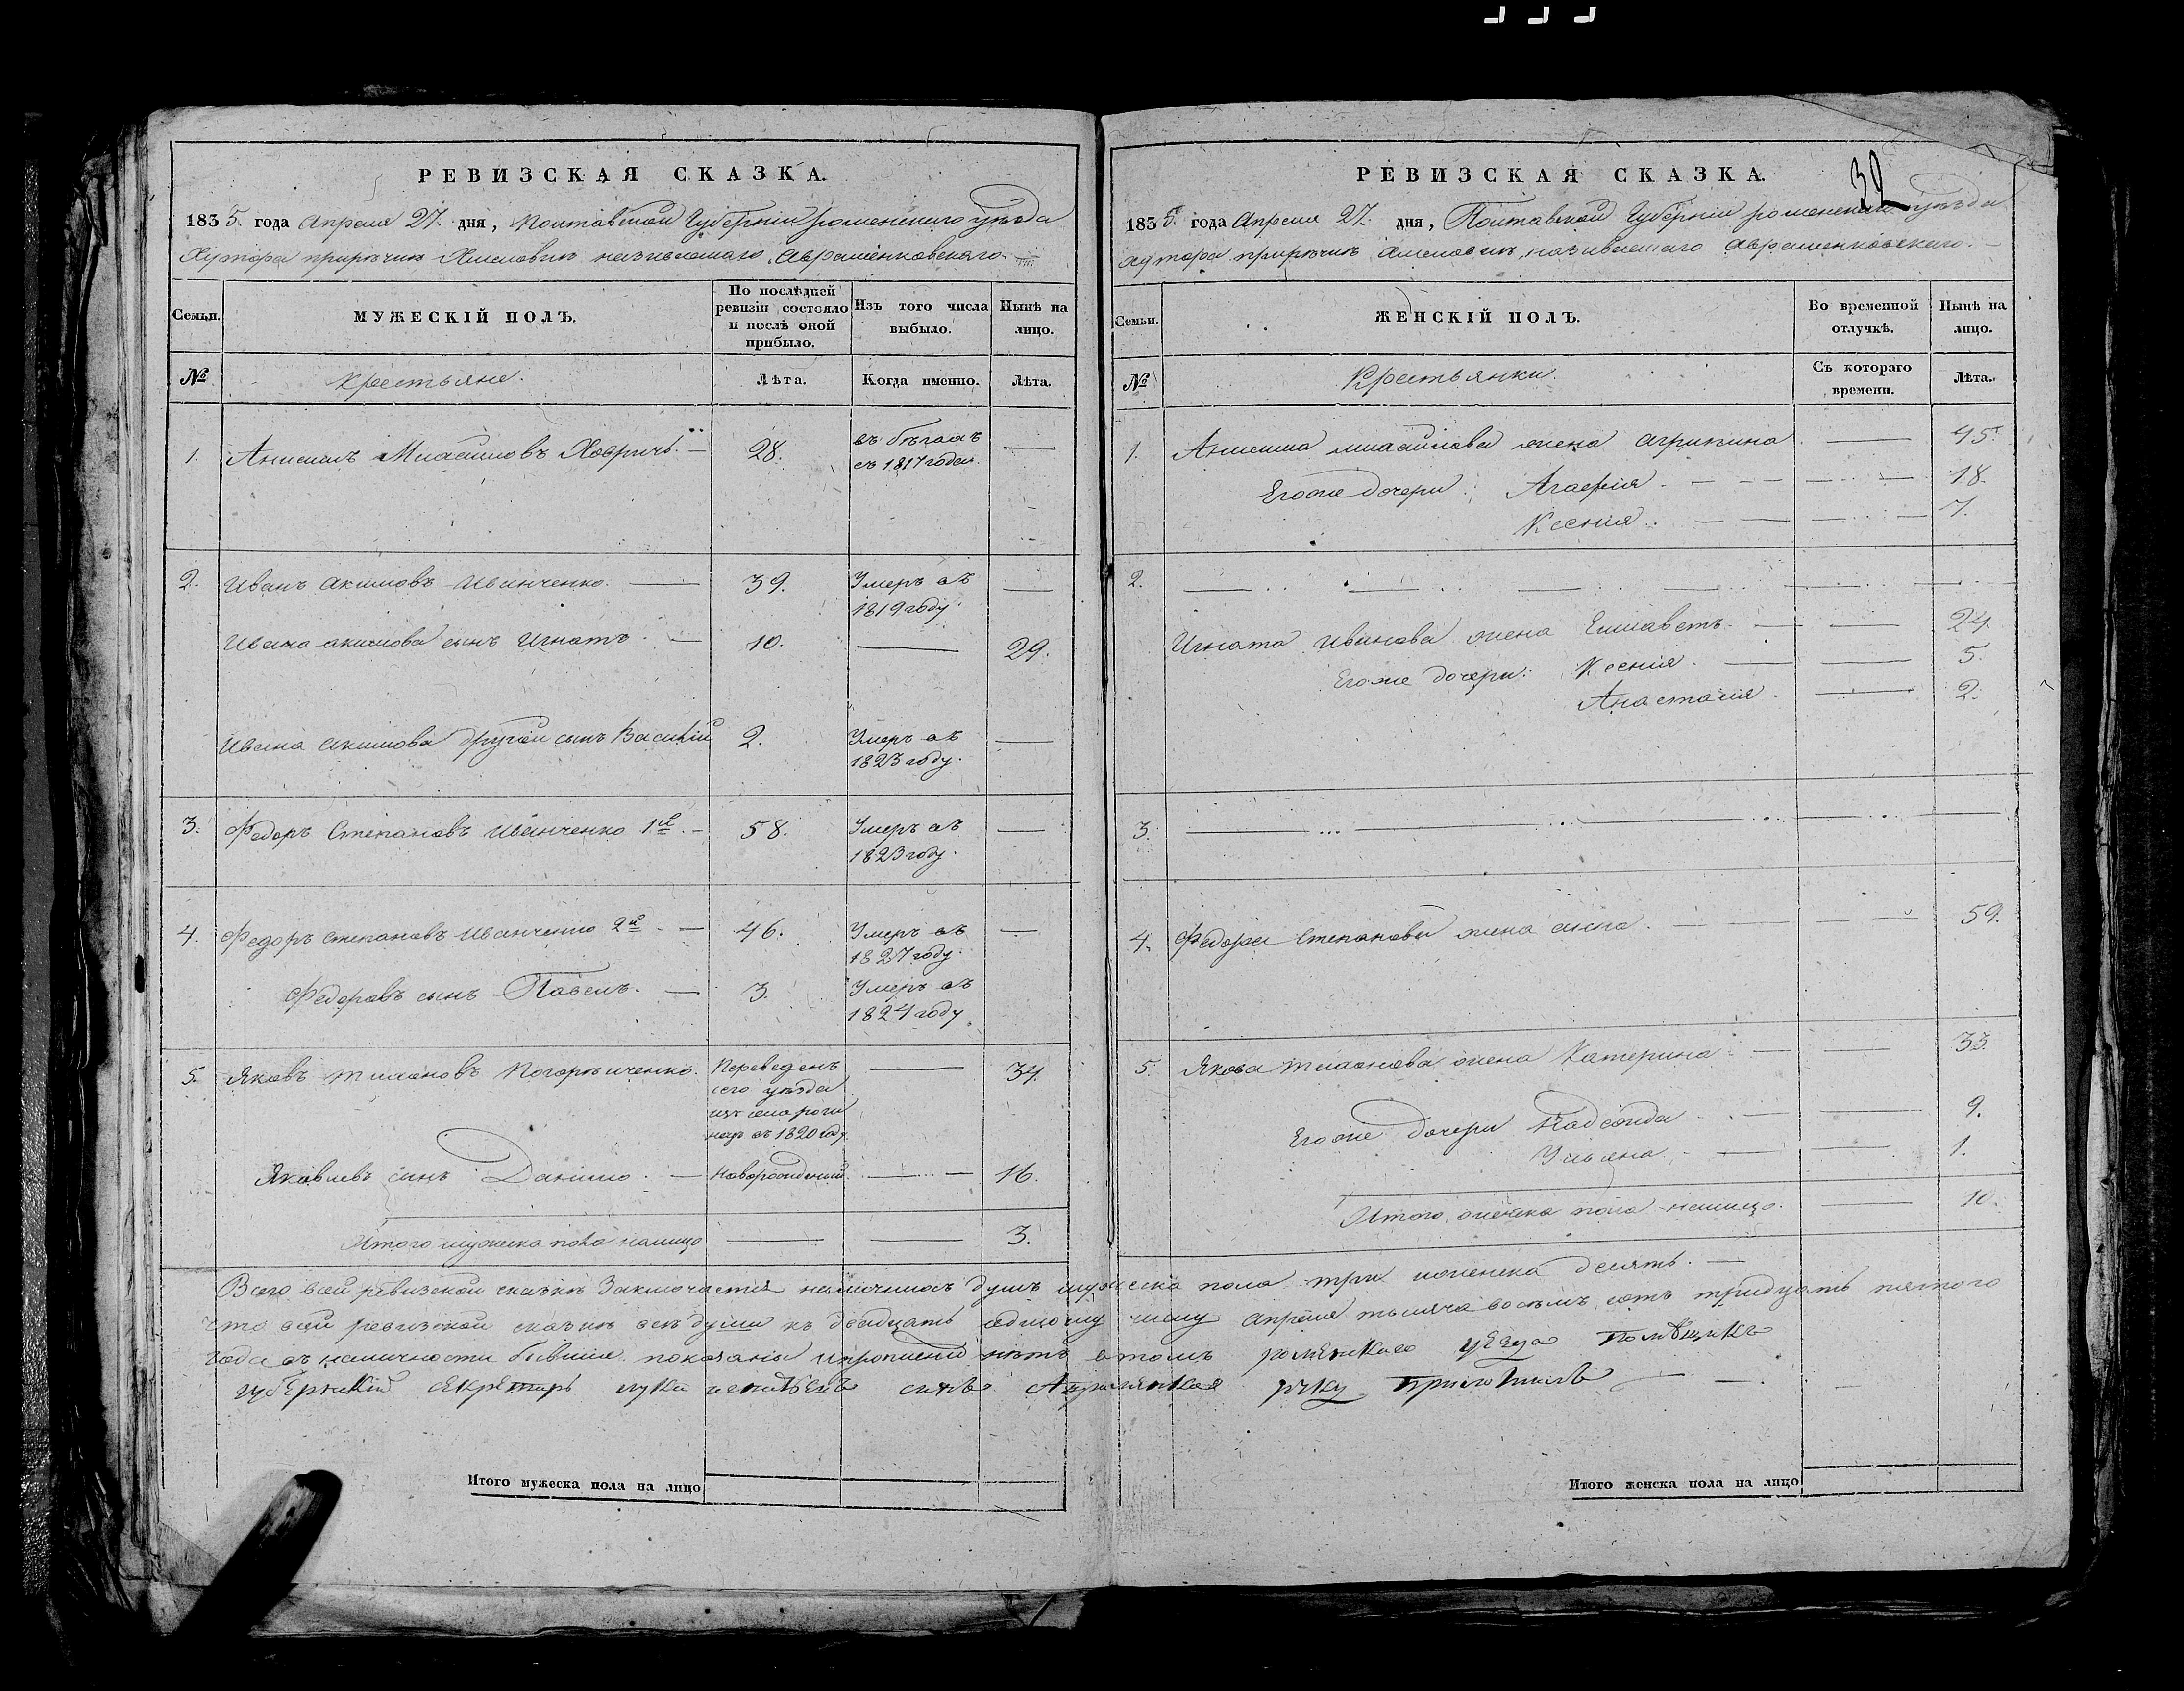 РЕВИЗСКАЯ СКАЗКА.
1835. года Апреля 27. дня, Полтавской Губерніи роменского уезда
Хутора приречки Хмеловки называемаго Аврашенковскаго.
Семьи.
МУЖЕСКІЙ ПОЛЪ.
По послѣдней ревизіи состояло и послѣ оной прибыло.
Изъ того числа выбыло.
Нынѣ на лицо.
№
крестьяне.
Лѣта.
Когда именно.
Лѣта.
1. 28. въ бегахъ
съ 1817 года.
2. Иванъ Акимовъ Иванченко. 39. Умеръ въ
1819 году.
Ивана акимова сынъ Игнатъ. 10. 29.
Ивана акимова другой сынъ Василій 2. Умеръ въ
1823 году.
3. Федоръ Степановъ Иванченко 1й. 58. Умеръ въ
1823 году.
4. Федоръ Степановъ Иванченко 2й. 46. Умеръ въ
1827 году.
Федоровъ сынъ Павелъ. 3. Умеръ въ
1824 году
5. Яковъ 34.
Переведенъ
сего уезда
въ 1820 году.
Яковлевъ сынъ Данило. Новорожденный. 16.
Итого мужеска пола налицо 3.
Итого мужеска пола на лицо
РЕВИЗСКАЯ СКАЗКА.
32
1835. года Апреля 27. дня, Полтавской Губерніи роменского уезда
хутора приречки Хмеловки, называемаго Аврашенковскаго.
Семьи.
ЖЕНСКІЙ ПОЛЪ.
Во временной отлучкѣ.
Нынѣ на лицо.
№
Крестьянки.
Съ котораго времени.
Лѣта.
1. жена Агрипина 45.
Егоже дочери: Агафія. 18.
Ксенія. 7.
2.
Игната Иванова жена Елисаветъ. 24.
Егоже дочери: Ксенія. 5.
Анастасія. 2.
3.
4. Федора Степанова жена анна. 59.
5. Якова жена Катерина. 33.
Егоже дочери 9.
Ульяна. 1.
Итого женска пола налицо. 10.
Всего въ сей ревизской сказке Заключается наличныхъ душъ мужеска пола три и женска десять.
что въ сей ревизской сказке все души къ двадцать седмому числу апреля тысяча восемъ сотъ тридцать пятого
года въ наличности бывшие показаны и прописныхъ нетъ въ томъ роменского уезда помещикъ
губернский секретарь лука сынъ руку приложилъ
Итого женска пола на лицо